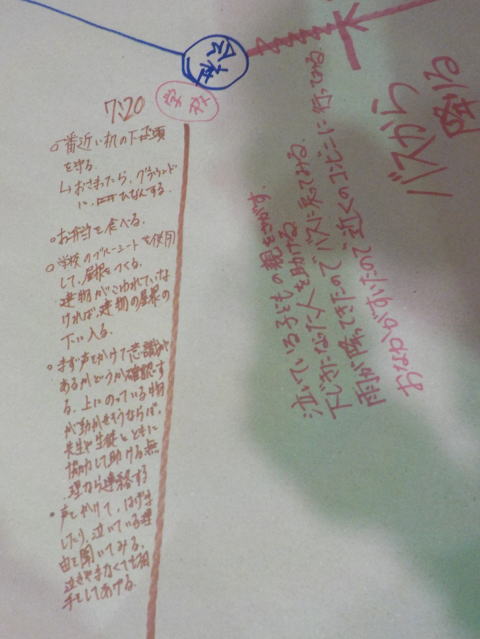 会社
学校
7:20
○一番近い机の下で頭
を守る。
↳おさまったら、グラウンド
に、ひなんする。
○お弁当を食べる。
○学校のブルーシートを使用
して、屋根をつくる。
建物がこわれていな
ければ、建物の屋根の
下に入る。
○まず声をかけて意識が
あるかどうか確認す
る。上にのっている物
が動かせそうならば、
先生や生徒とともに
協力して助ける無
理なら連絡する
・声をかけて、はげま
したり、泣いている理
由を聞いてみる。
泣きやまなくても相
手をしてあげる。
バスから
降りる
泣いている子どもの親をさがす。
下じきになった人を助ける。
雨が降ってきたのでバスに戻ってみる。
おなかがすいたので近くのコンビニに行ってみる。